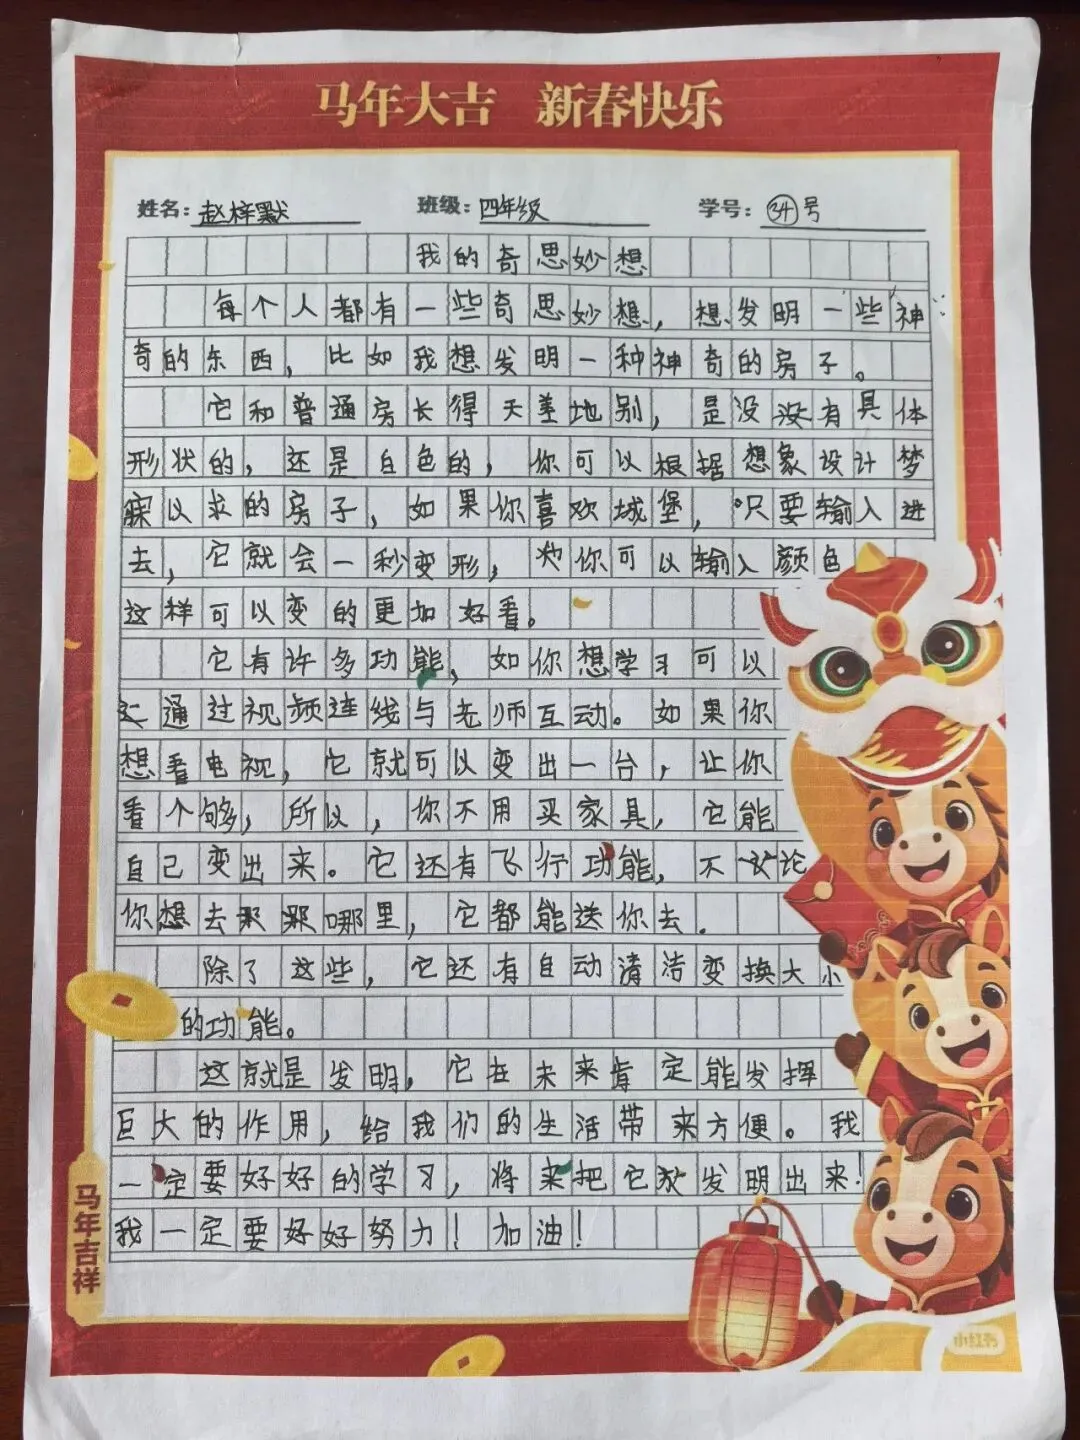 马年大吉 新春快乐
姓名：赵梓默 班级：四年级 学号：34号
我的奇思妙想
每个人都有一些奇思妙想，想发明一些神
奇的东西，比如我想发明一种神奇的房子。
它和普通房长得天差地别，是没有具体
形状的，还是白色的，你可以根据想象设计梦
寐以求的房子，如果你喜欢城堡，只要输入进
去，它就会一秒变形，你可以输入颜色
这样可以变的更加好看。
它有许多功能，如你想学习可以
通过视频连线与老师互动。如果你
想看电视，它就可以变出一台，让你
看个够，所以，你不用买家具，它能
自己变出来。它还有飞行功能，不论
你想去哪里，它都能送你去.
除了这些，它还有自动清洁变换大小
的功能。
这就是发明，它在未来肯定能发挥
巨大的作用，给我们的生活带来方便。我
一定要好好的学习，将来把它发明出来！
我一定要好好努力！加油！
马年吉祥
小红书